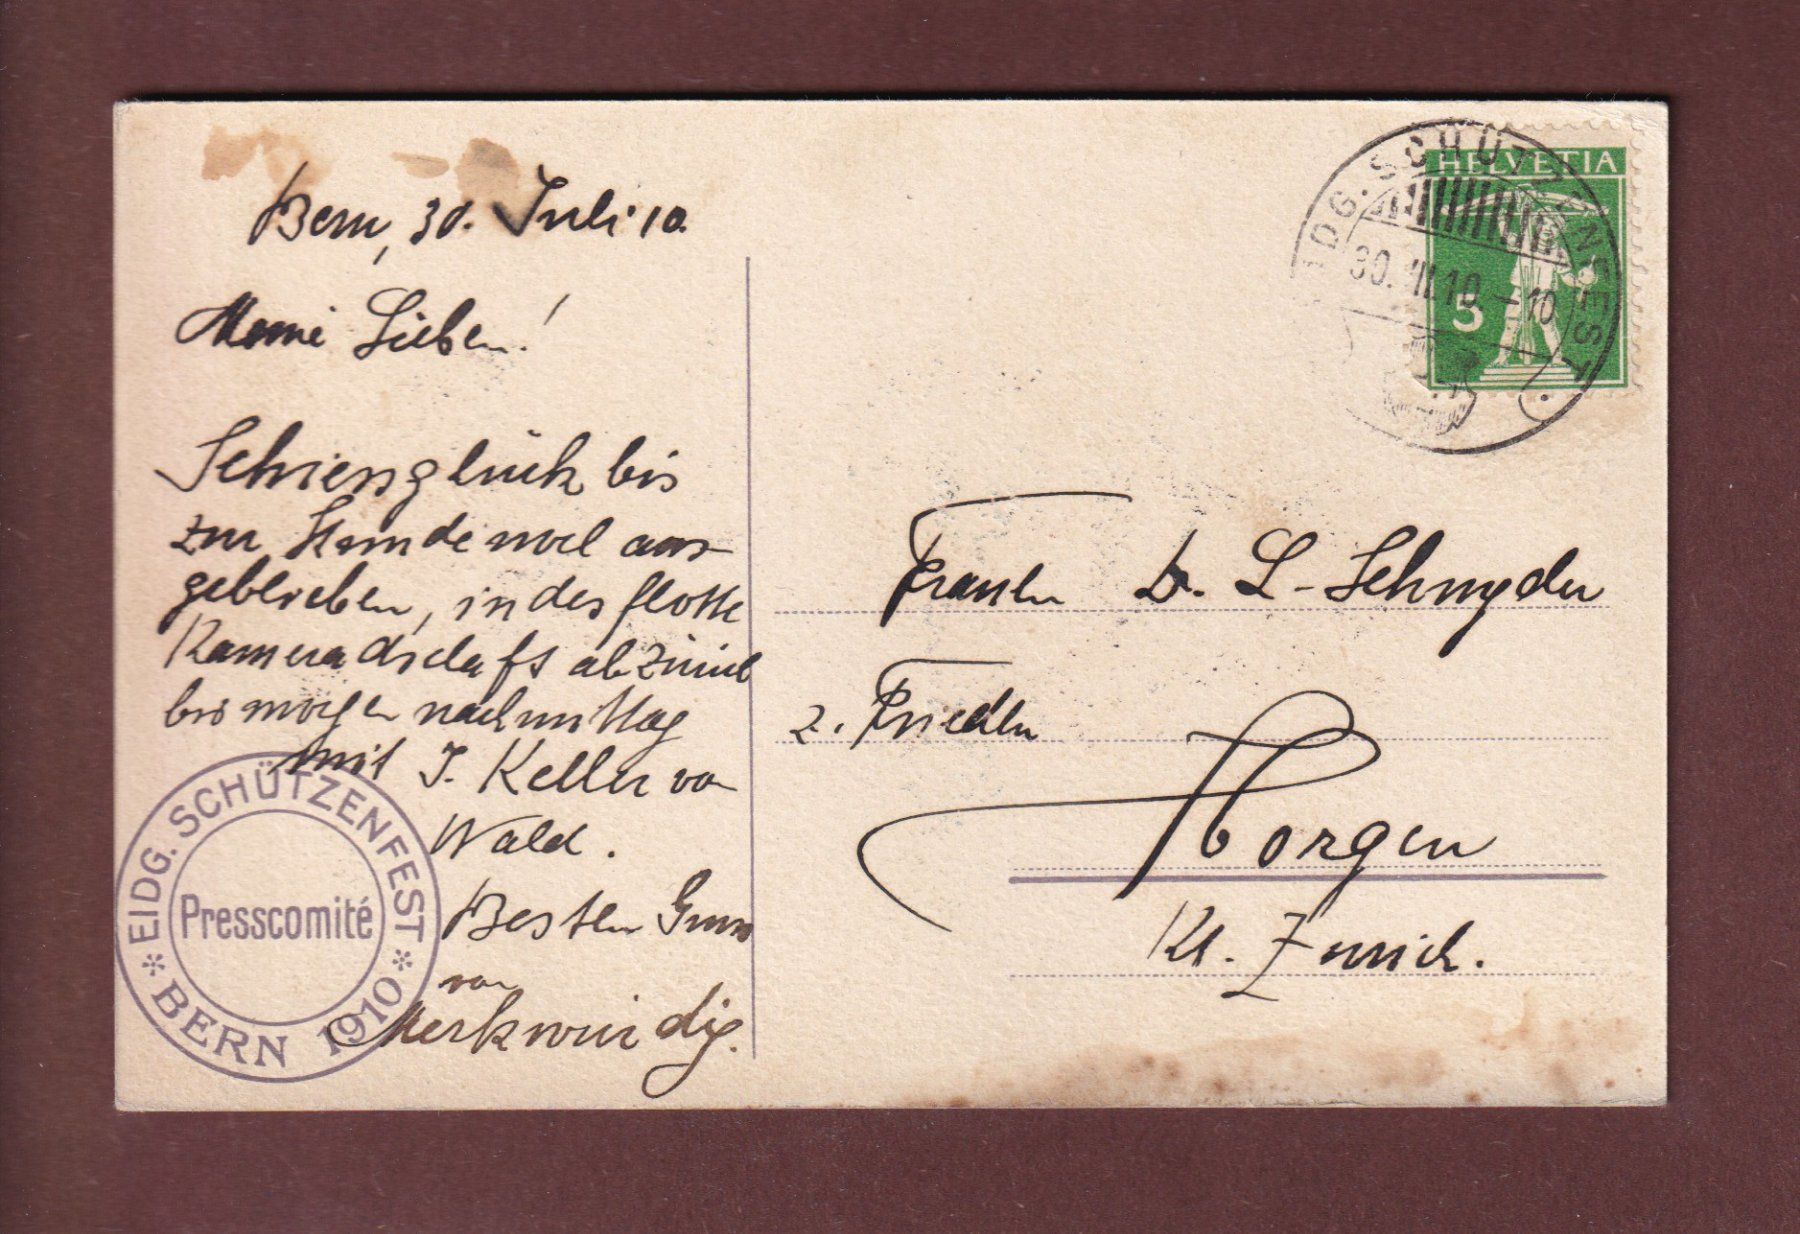 Bern, 30. Juli 10.
Meine Lieben!
Schiessglück bis
zur Stunde noch aus-
geblieben, indes flotte
Kameradschaft ab Zürich
bis morgen nachmittag
mit J. Keller von
Wald.
Besten Gruss
von
Merkwürdig.
EIDG. SCHÜTZENFEST
Presscomité
* BERN 1910 *
EIDG. SCHÜTZENFEST.
30. VII.10.-10
HELVETIA
5
L-Schnyder
z. Frieden
Horgen
Kt. Zürich.